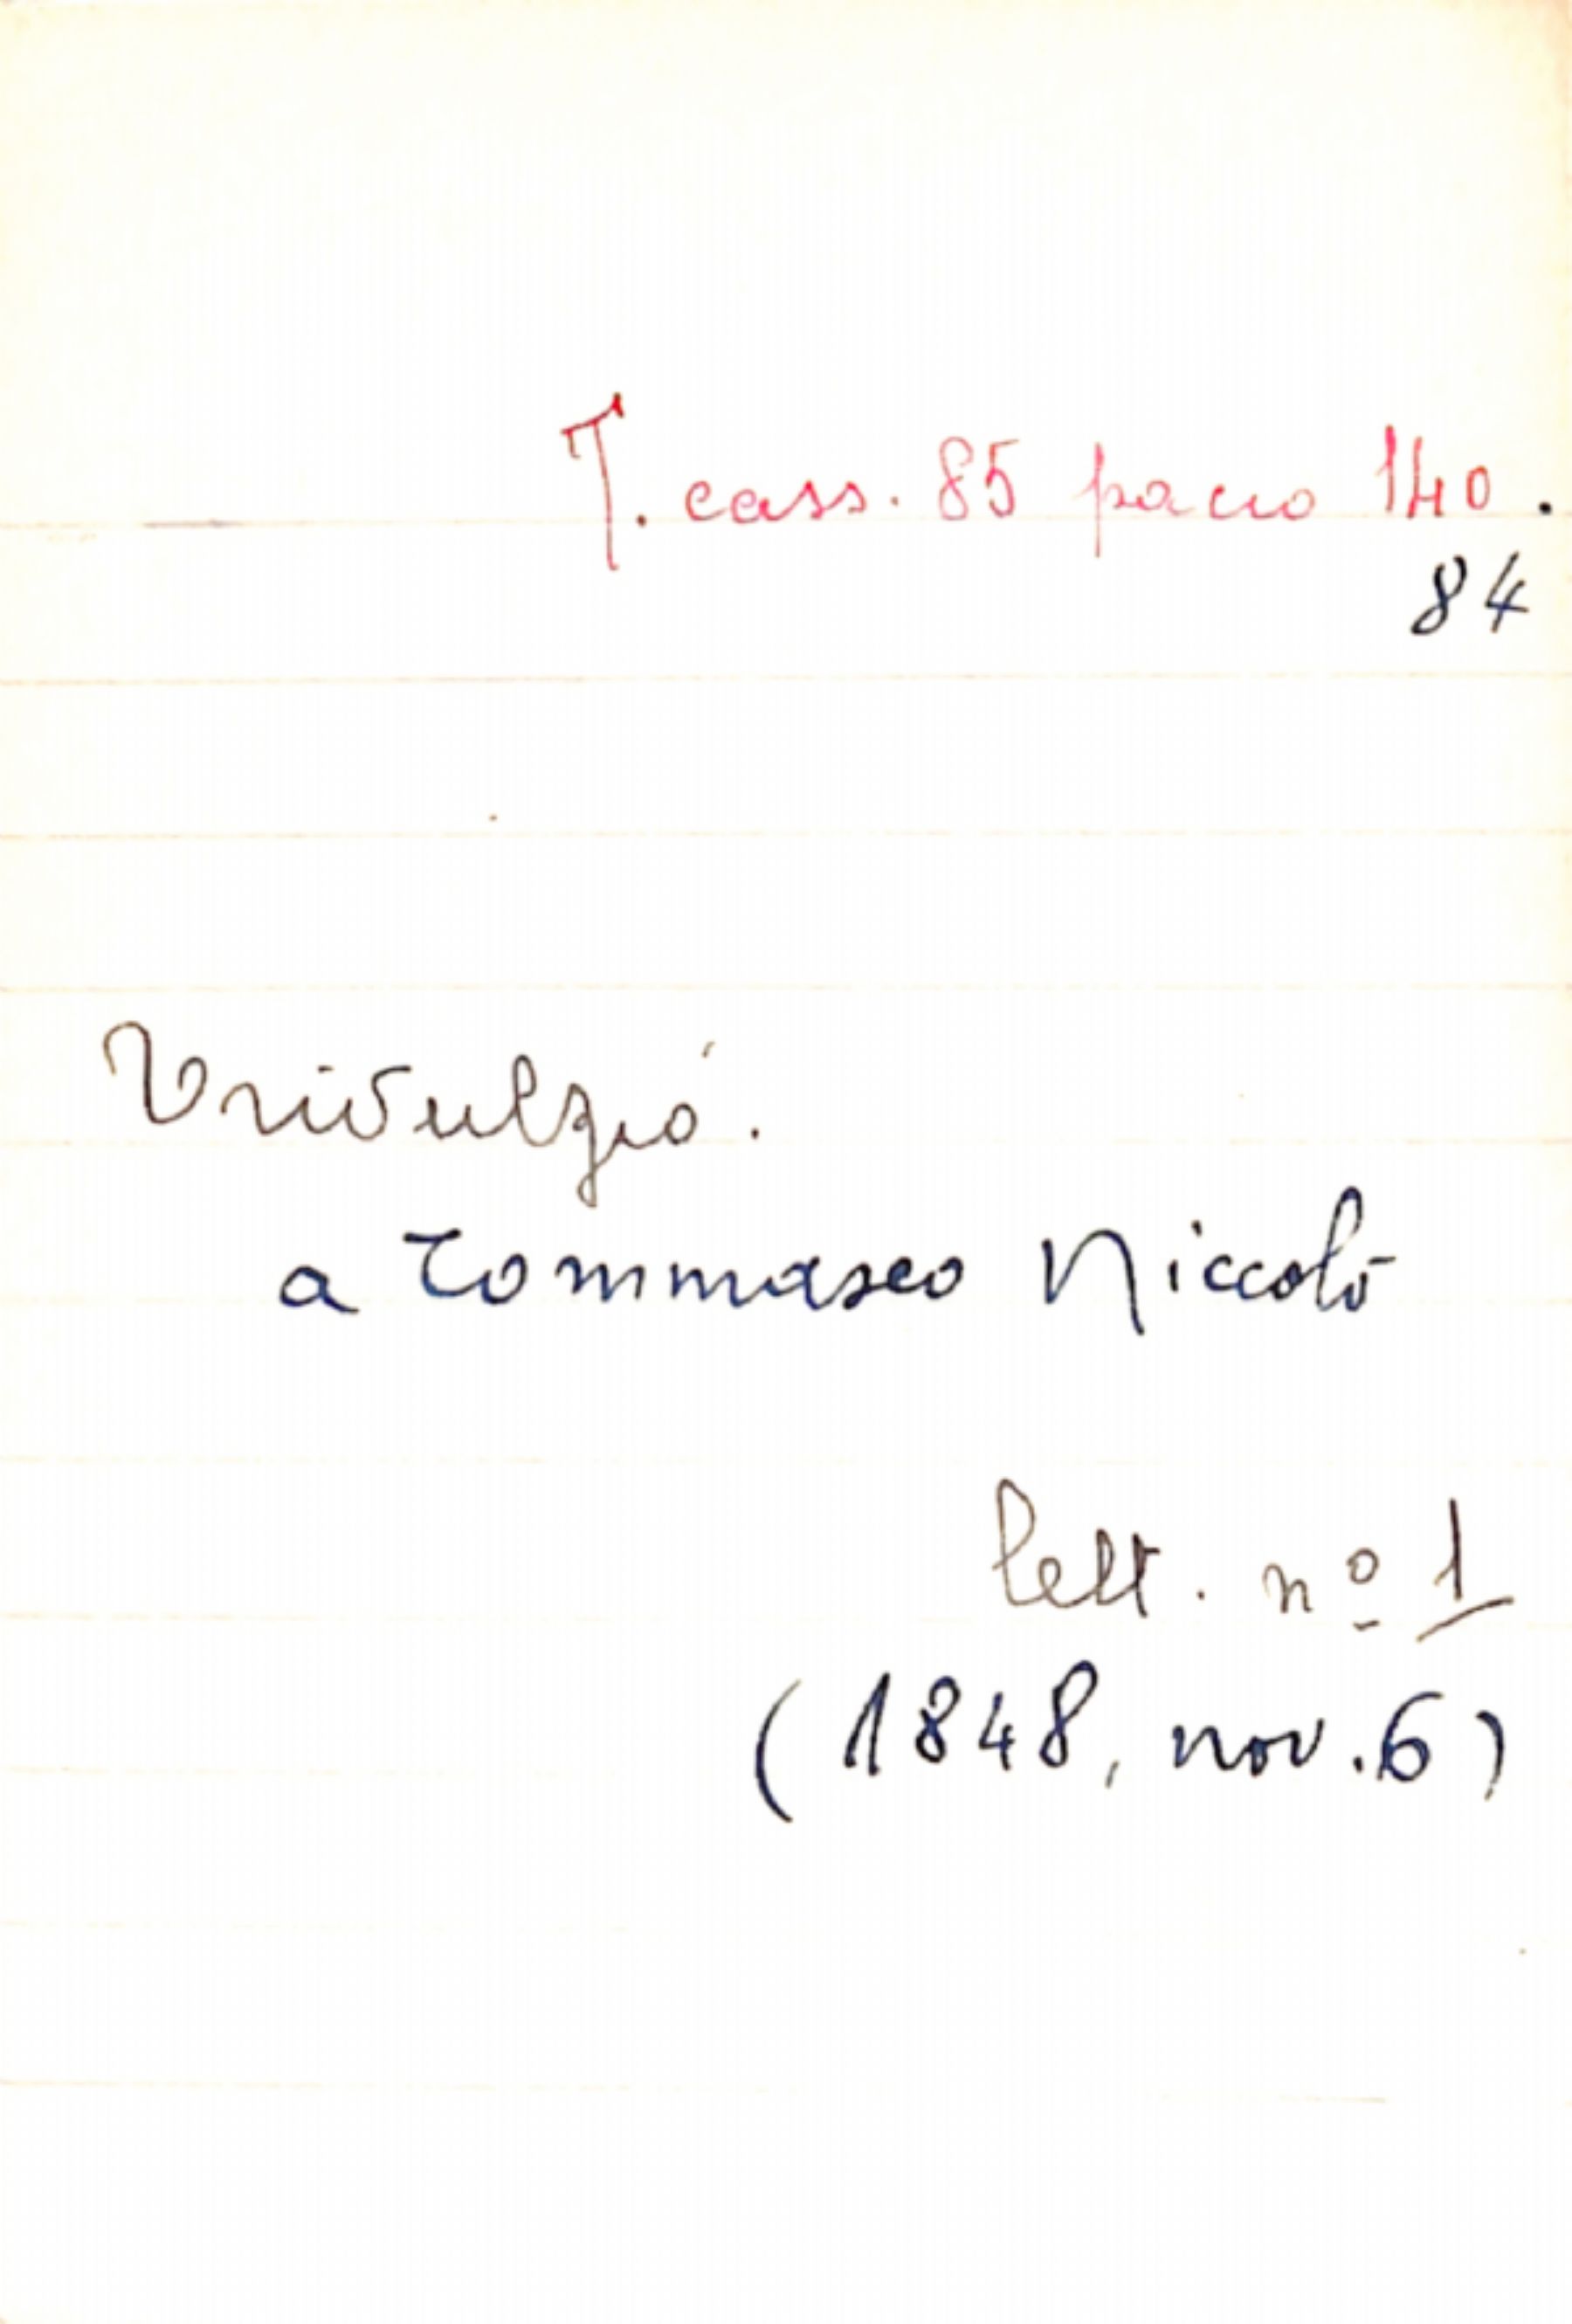 T. cass. 85 pacco 140.
84
Trivulzio.
a Tommaseo Niccolò
lett. nº 1
(1848, nov. 6)